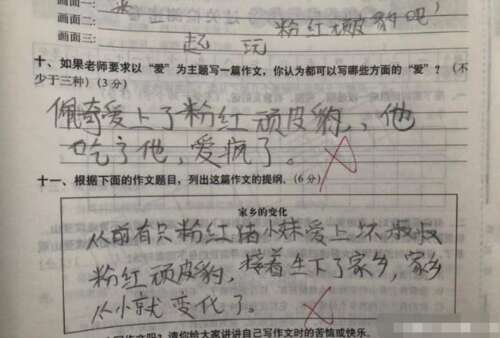 画面二：
画面三：起 玩 粉红顽皮豹吧）
十、如果老师要求以“爱”为主题写一篇作文，你认为都可以写哪些方面的“爱”？（不
少于三种）（3 分）
佩奇爱上了粉红顽皮豹，他
吃了他，爱疯了。
十一、根据下面的作文题目，列出这篇作文的提纲。（6 分）
家乡的变化
从前有只粉红猪小妹爱上坏叔叔
粉红顽皮豹，接着生下了家乡，家乡
从小就变化了。
写作文吗？请你给大家讲讲自己写作文时的苦恼或快乐。